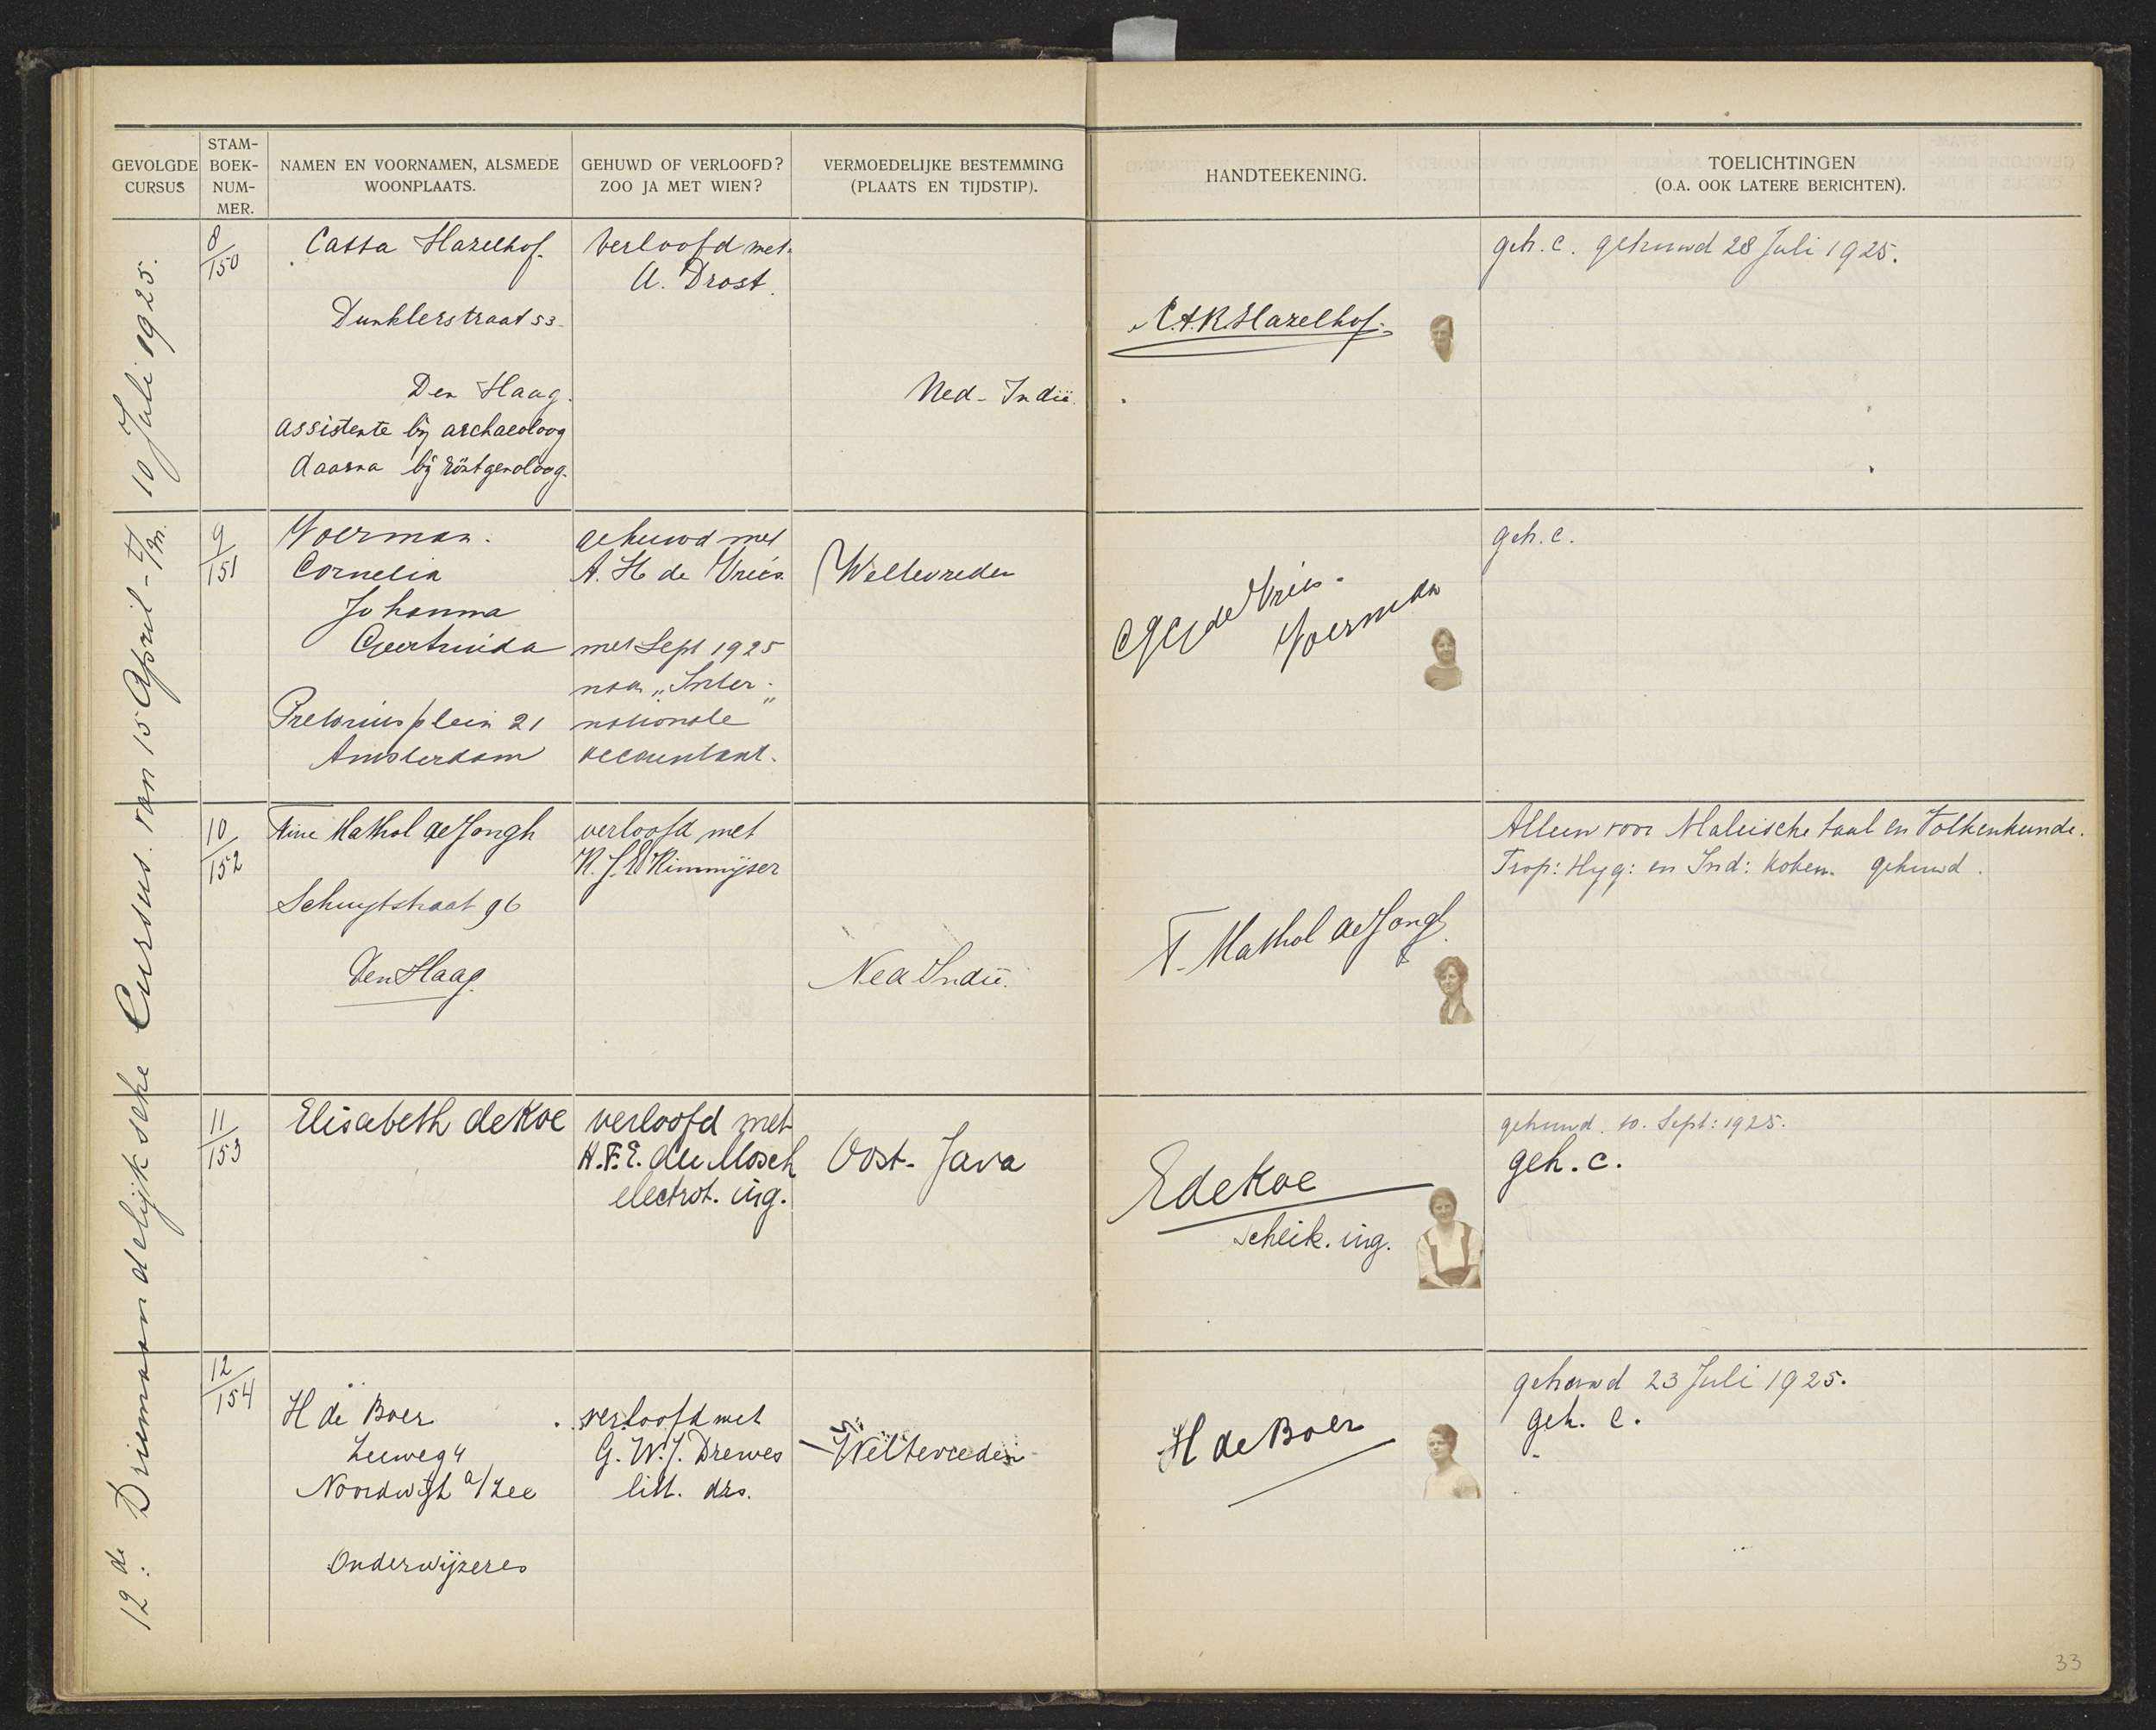 GEVOLGDE CURSUS
STAM-BOEK-NUM-MER.
NAMEN EN VOORNAMEN, ALSMEDE WOONPLAATS.
GEHUWD OF VERLOOFD? ZOO JA MET WIEN?
VERMOEDELIJKE BESTEMMING (PLAATS EN TIJDSTIP).
HANDTEEKENING.
TOELICHTINGEN (O.A. OOK LATERE BERICHTEN).
12de Driemaandelijksche Cursus van 15 April - t/m. 10 Juli 1925.
8/150
Catta Hazelhof.
Dunklerstraat 53.
Den Haag.
assistente bij archaeoloog
daarna bij röntgenoloog.
Verloofd met
A. Drost.
Ned-Indië.
C.A.R. Hazelhof.
geh. c. gehuwd 28 Juli 1925.
9/151
Voerman.
Cornelia
Johanna
Geertruida
Pretoriusplein 21
Amsterdam
gehuwd met
A. H. de Vries
met Sept 1925
naar „Inter-
nationale"
accountant.
Weltevreden
CJG de Vries-
Voerman
geh. c.
10/152
Tine Mathol de Jongh
Schuytstraat 96
Den Haag.
verloofd met
Ned Indië.
T. Mathol de Jongh
Alleen voor Maleische taal en Volkenkunde.
Trop: Hyg: en Ind: koken. gehuwd.
11/153
Elisabeth de Koe
verloofd met
H.F.E. du Mosch
electrot. ing.
Oost-Java
E de Koe
scheik. ing.
gehuwd. 10. Sept: 1925.
geh. c.
12/154
H de Boer
Zeeweg 4
Noordwijk a/Zee
Onderwijzeres
verloofd met
G. W. J. Drewes
litt. drs.
Weltevreden
H de Boer
gehuwd 23 Juli 1925.
geh. c.
33